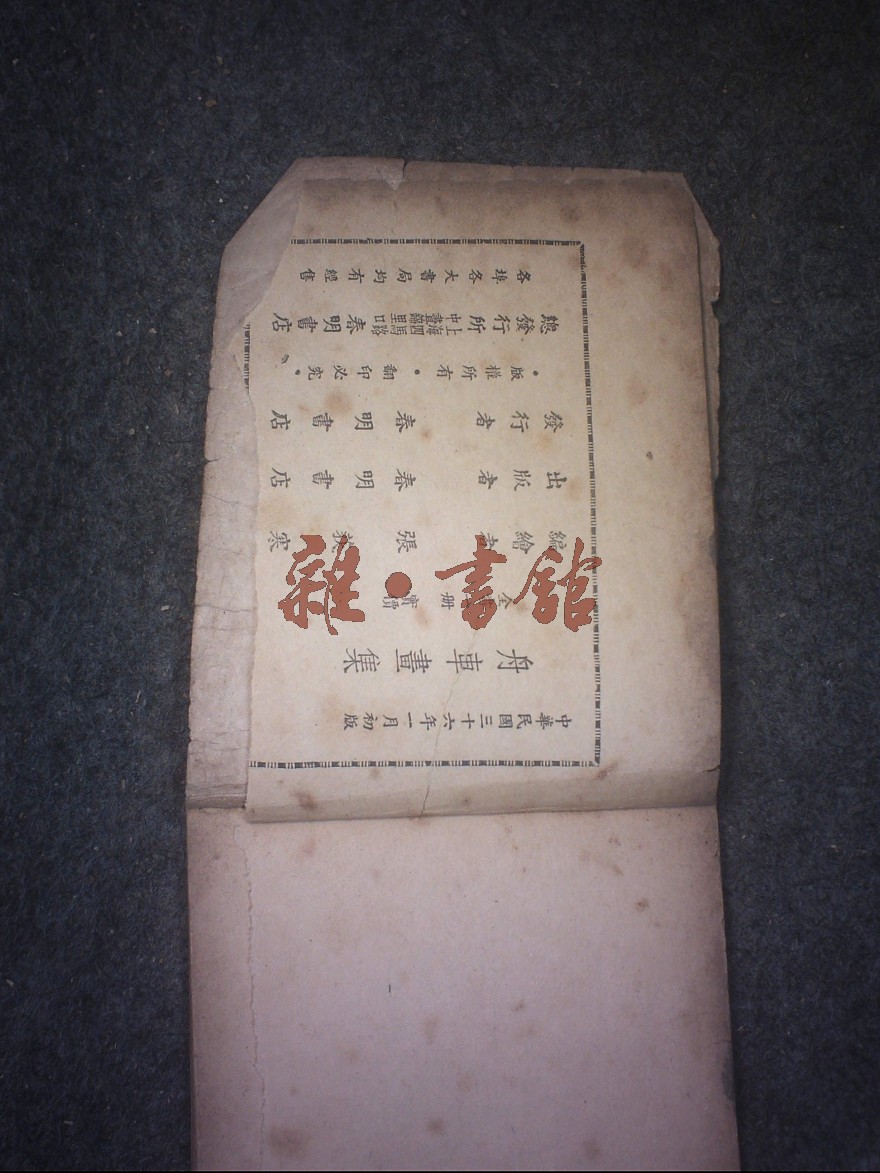 中華民國三十六年一月初版
舟車畫集
全一册 實價
編繪者 張狄寒
出版者 春明書店
發行者 春明書店
・版權所有・翻印必究・
總發行所 上海四馬路中畫錦里口 春明書店
各埠各大書局均有經售
雜・書館